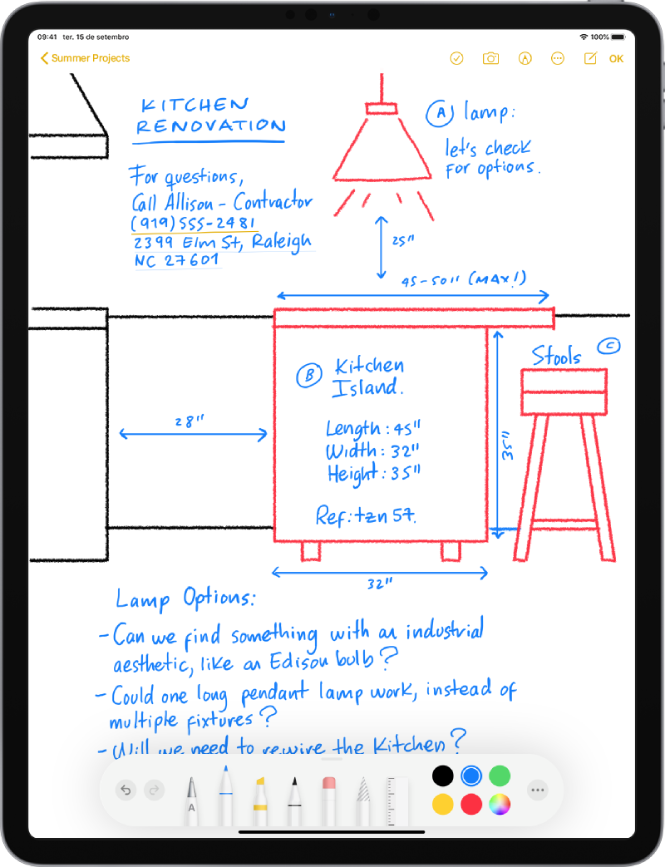 09:41 ter. 15 de setembro
100%
Summer Projects
OK
KITCHEN
RENOVATION
A lamp:
let's check
for options.
For questions,
Call Allison - Contractor
(919) 555-2481
2399 Elm St, Raleigh
NC 27601
25"
45-50" (MAX!)
B Kitchen
Island.
Length: 45"
Width: 32"
Height: 35"
Ref: tzn 57.
28"
35"
Stools C
32"
Lamp Options:
- Can we find something with an industrial
aesthetic, like an Edison bulb?
- Could one long pendant lamp work, instead of
multiple fixtures?
- Will we need to rewire the Kitchen?
A